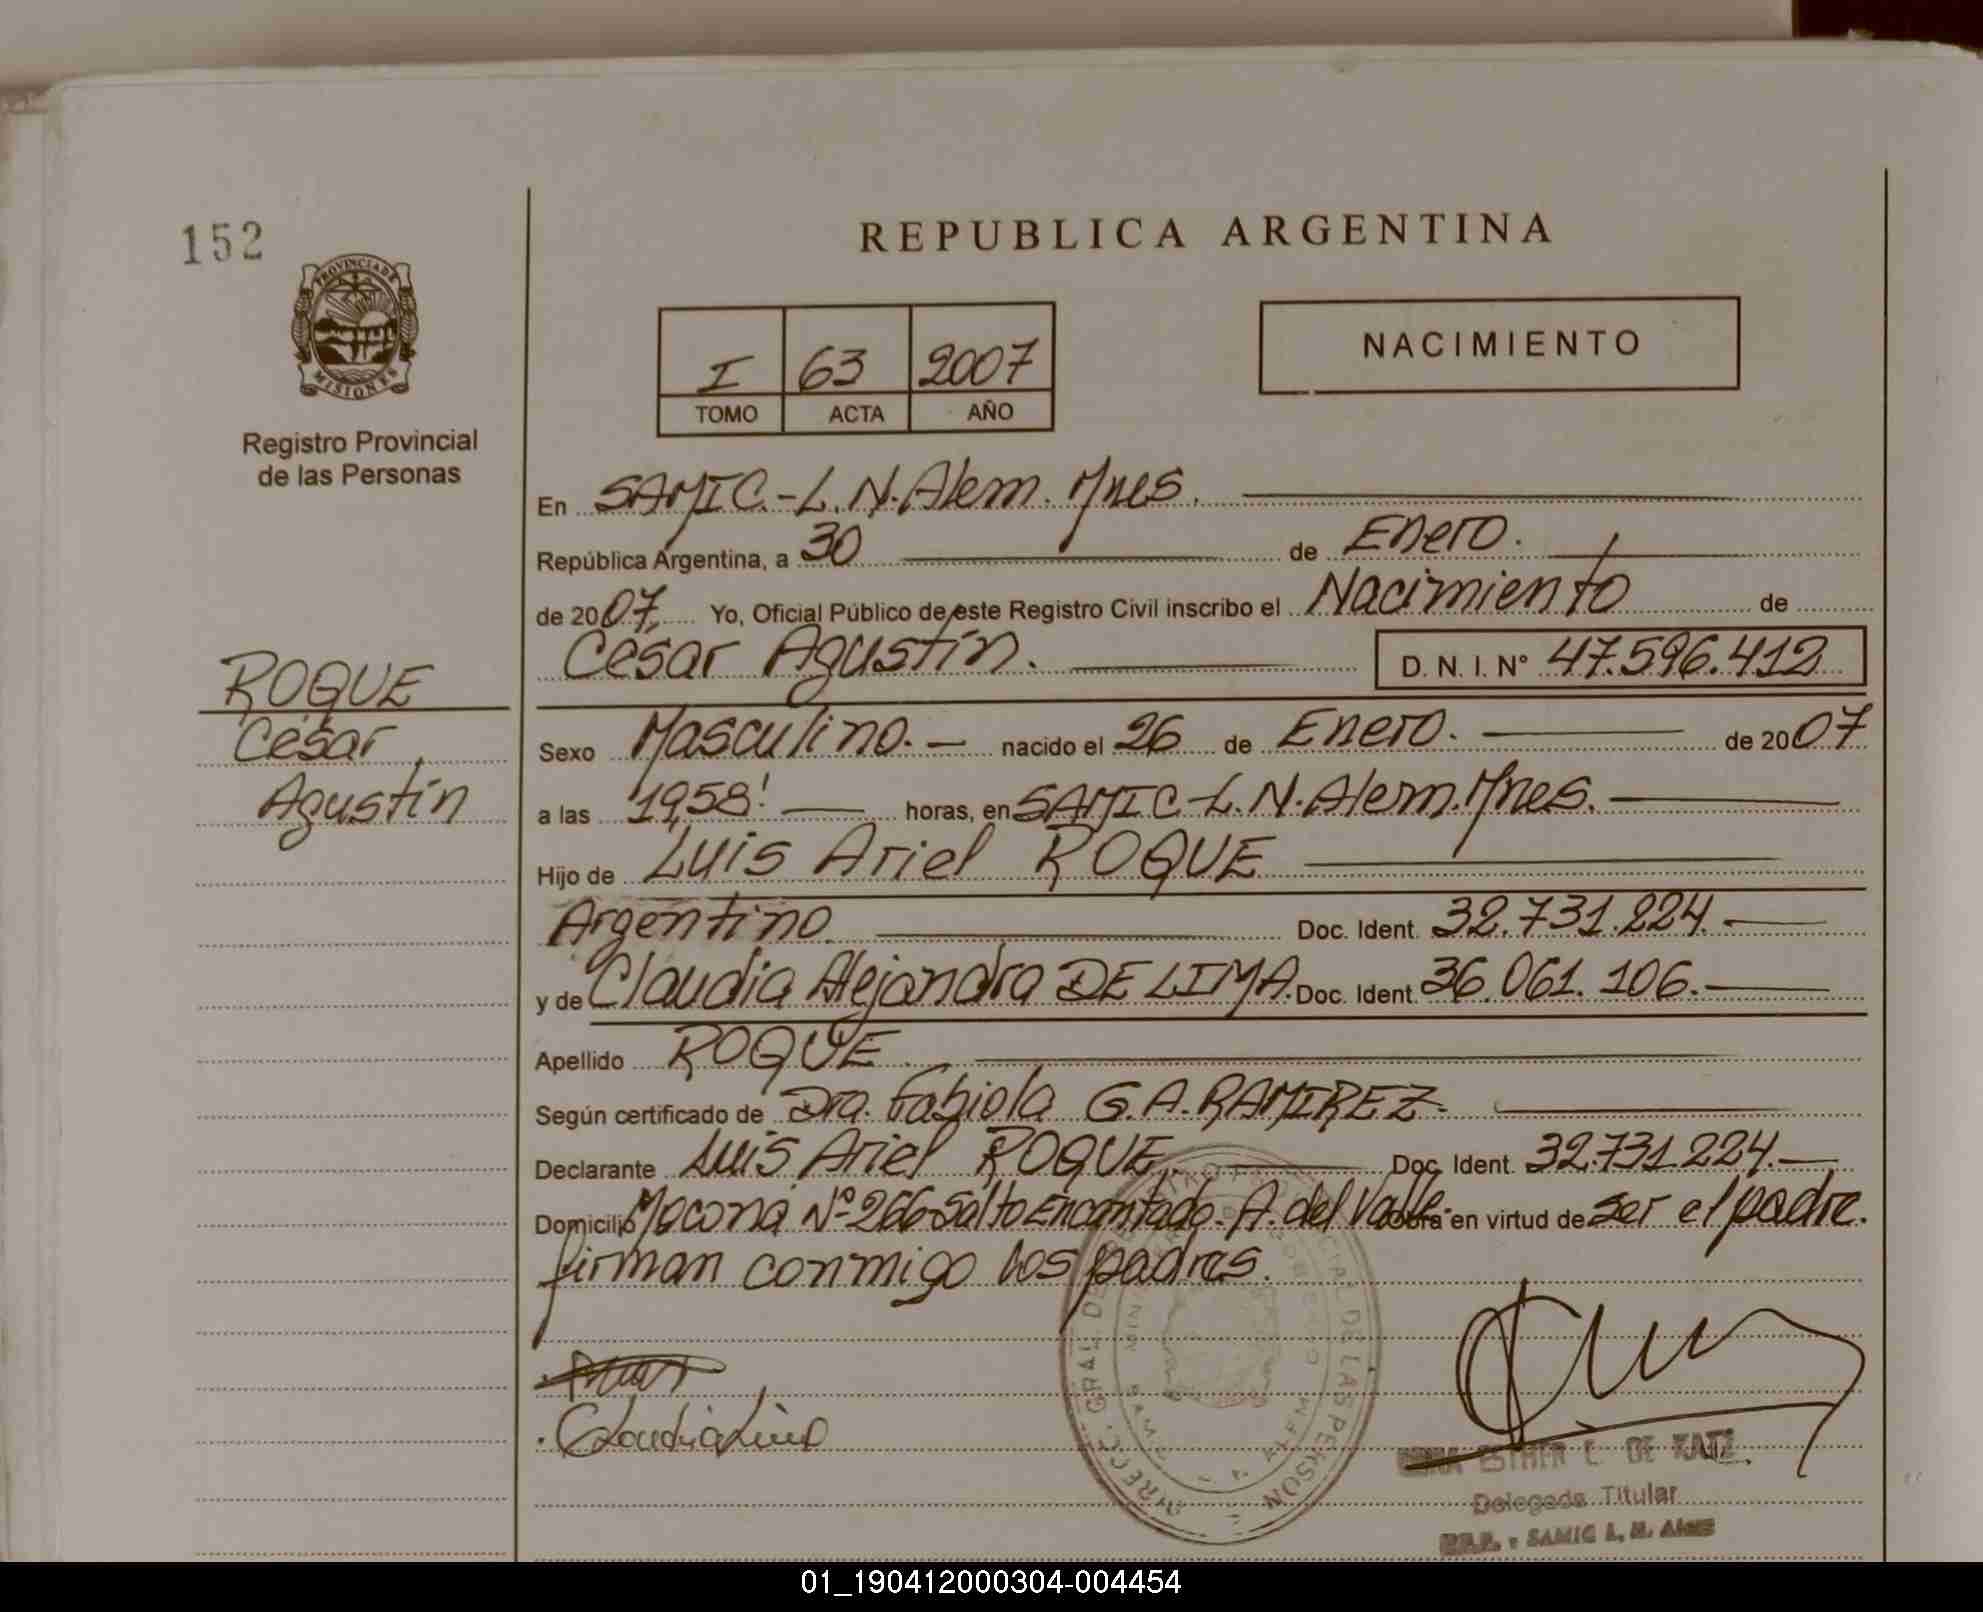 152
REPUBLICA ARGENTINA
PROVINCIA DE
MISIONES
Registro Provincial
de las Personas
I 63 2007
TOMO ACTA AÑO
NACIMIENTO
En SAMIC.-L.N.Alem. Mnes.
República Argentina, a 30 de Enero.
de 2007. Yo, Oficial Público de este Registro Civil inscribo el Nacimiento de
César Agustín. D. N. I. Nº 47.596.412
ROQUE
César
Agustín
Sexo Masculino. nacido el 26 de Enero. de 2007
a las 19,58' horas, en SAMIC-L.N.Alem.Mnes.
Hijo de Luis Ariel ROQUE
Argentino Doc. Ident. 32.731.224.
y de Claudia Alejandra DE LIMA. Doc. Ident. 36.061.106.
Apellido ROQUE
Según certificado de Dra. Fabiola G.A. RAMIREZ.
Declarante Luis Ariel ROQUE. Doc. Ident. 32.731.224.
Domicilio Mocona Nº 266-Salto Encantado. A. del Valle. Obra en virtud de ser el padre.
firman conmigo los padres.
Claudia Lima
ESTHER L. DE KATZ
Delegada Titular
SAMIC L. N. Alem
01_190412000304-004454